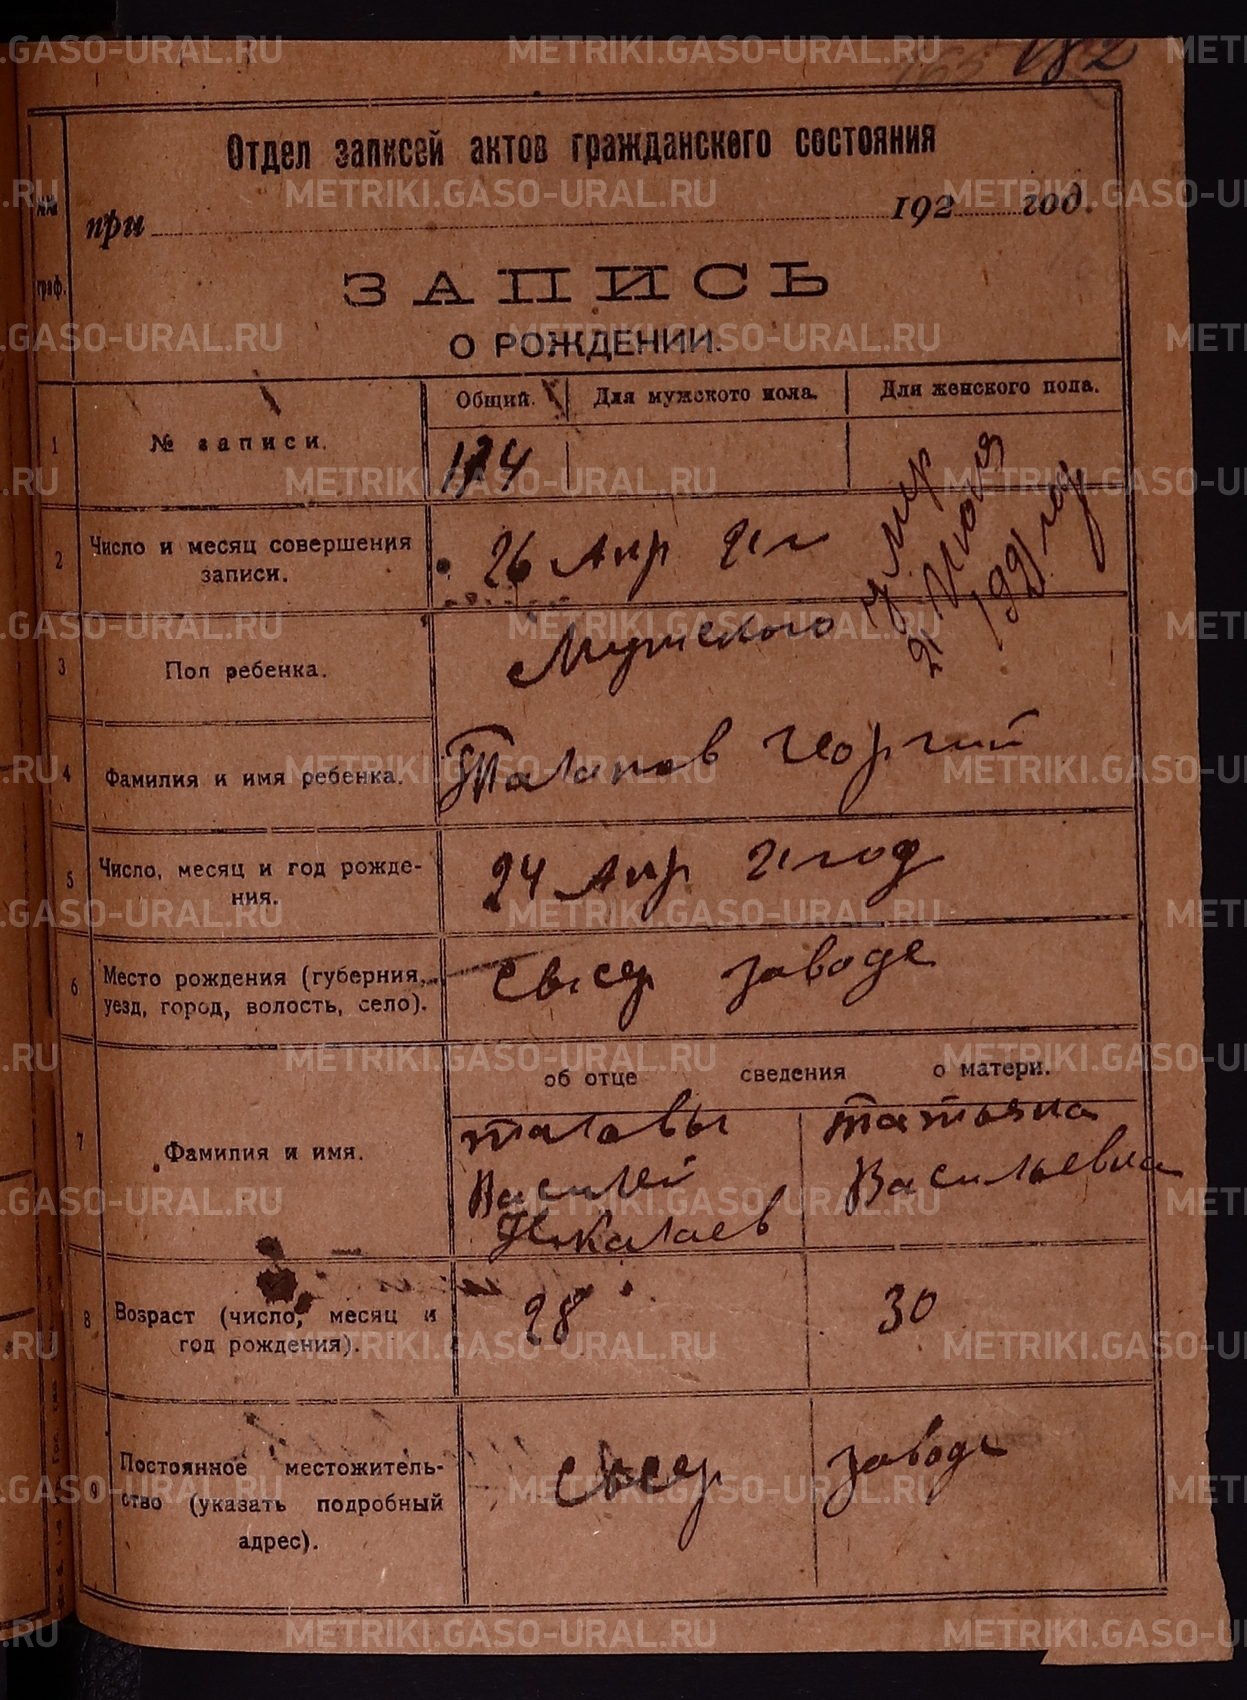 182
Отдел записей актов гражданского состояния
при 192 год.
№№ граф.
ЗАПИСЬ
О РОЖДЕНИИ.
Общий. Для мужского пола. Для женского пола.
1 № записи. 174
2 Число и месяц совершения записи. 26 Апр 21 г
умир
21 Июля
1921 год
3 Пол ребенка. Мужского
4 Фамилия и имя ребенка. Талапов Георгий
5 Число, месяц и год рождения. 24 Апр 21 год
6 Место рождения (губерния, уезд, город, волость, село). Сысер заводе
об отце сведения о матери.
7 Фамилия и имя.
Василей
Николаев
Татьяна
Васильевна
8 Возраст (число, месяц и год рождения). 28 30
9 Постоянное местожительство (указать подробный адрес). Сысер заводе
METRIKI.GASO-URAL.RU